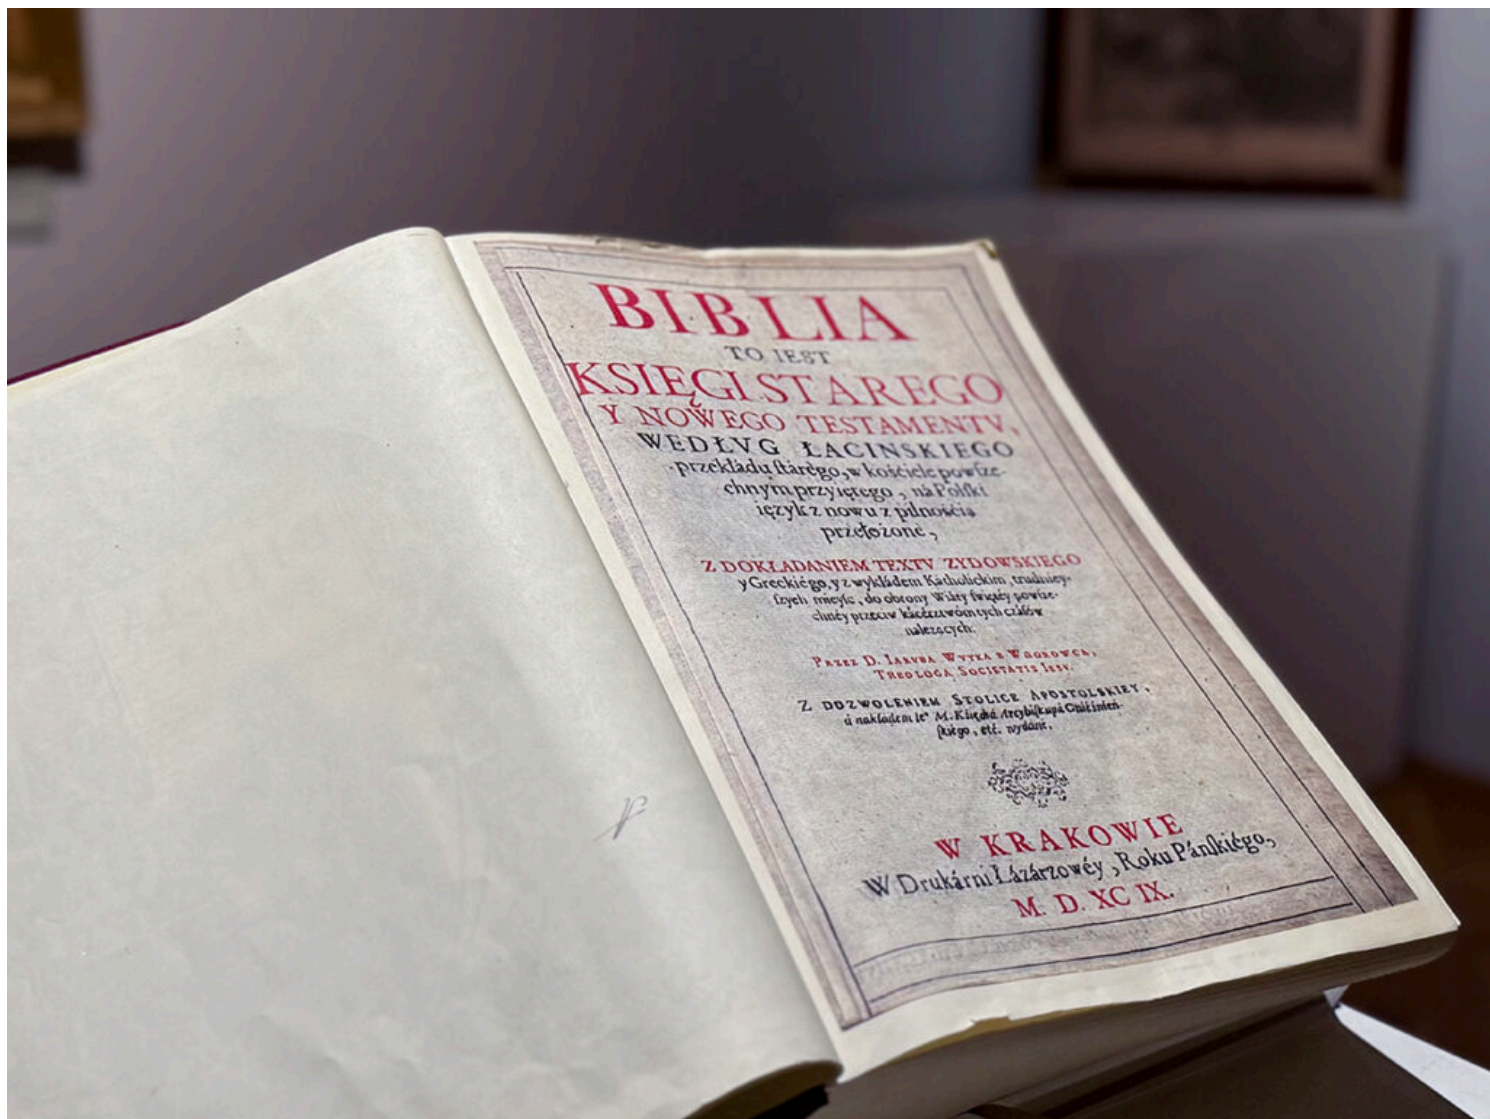 BIBLIA
TO IEST
KSIĘGI STAREGO
Y NOWEGO TESTAMENTV,
WEDŁVG ŁACINSKIEGO
przekłádu ſtárégo, w kośćiele powſze-
chnym przyiętego, ná Polſki
ięzyk z nowu z pilnośćią
przełożoné,
Z DOKŁADANIEM TEXTV ZYDOWSKIEGO
y Greckiégo, y z wykłádem Kátholickim, trudniey-
ſzych mieyſc, do obrony Wiáry ſwiętéy powſze-
chnéy przećiw kácérztwóm tych czáſów
należących:
PRZEZ D. IAKVBA WVYKA Z WĄGROWCA,
THEOLOGA SOCIETATIS IESV.
Z DOZWOLENIEM STOLICE APOSTOLSKIEY,
á nakłádem Ie° M. Kśiędzá Arcybiſkupá Gnieźnień-
ſkiégo, etć. wydáne.
W KRAKOWIE
W Drukárni Łázárzowéy, Roku Páńſkiégo,
M. D. XC IX.